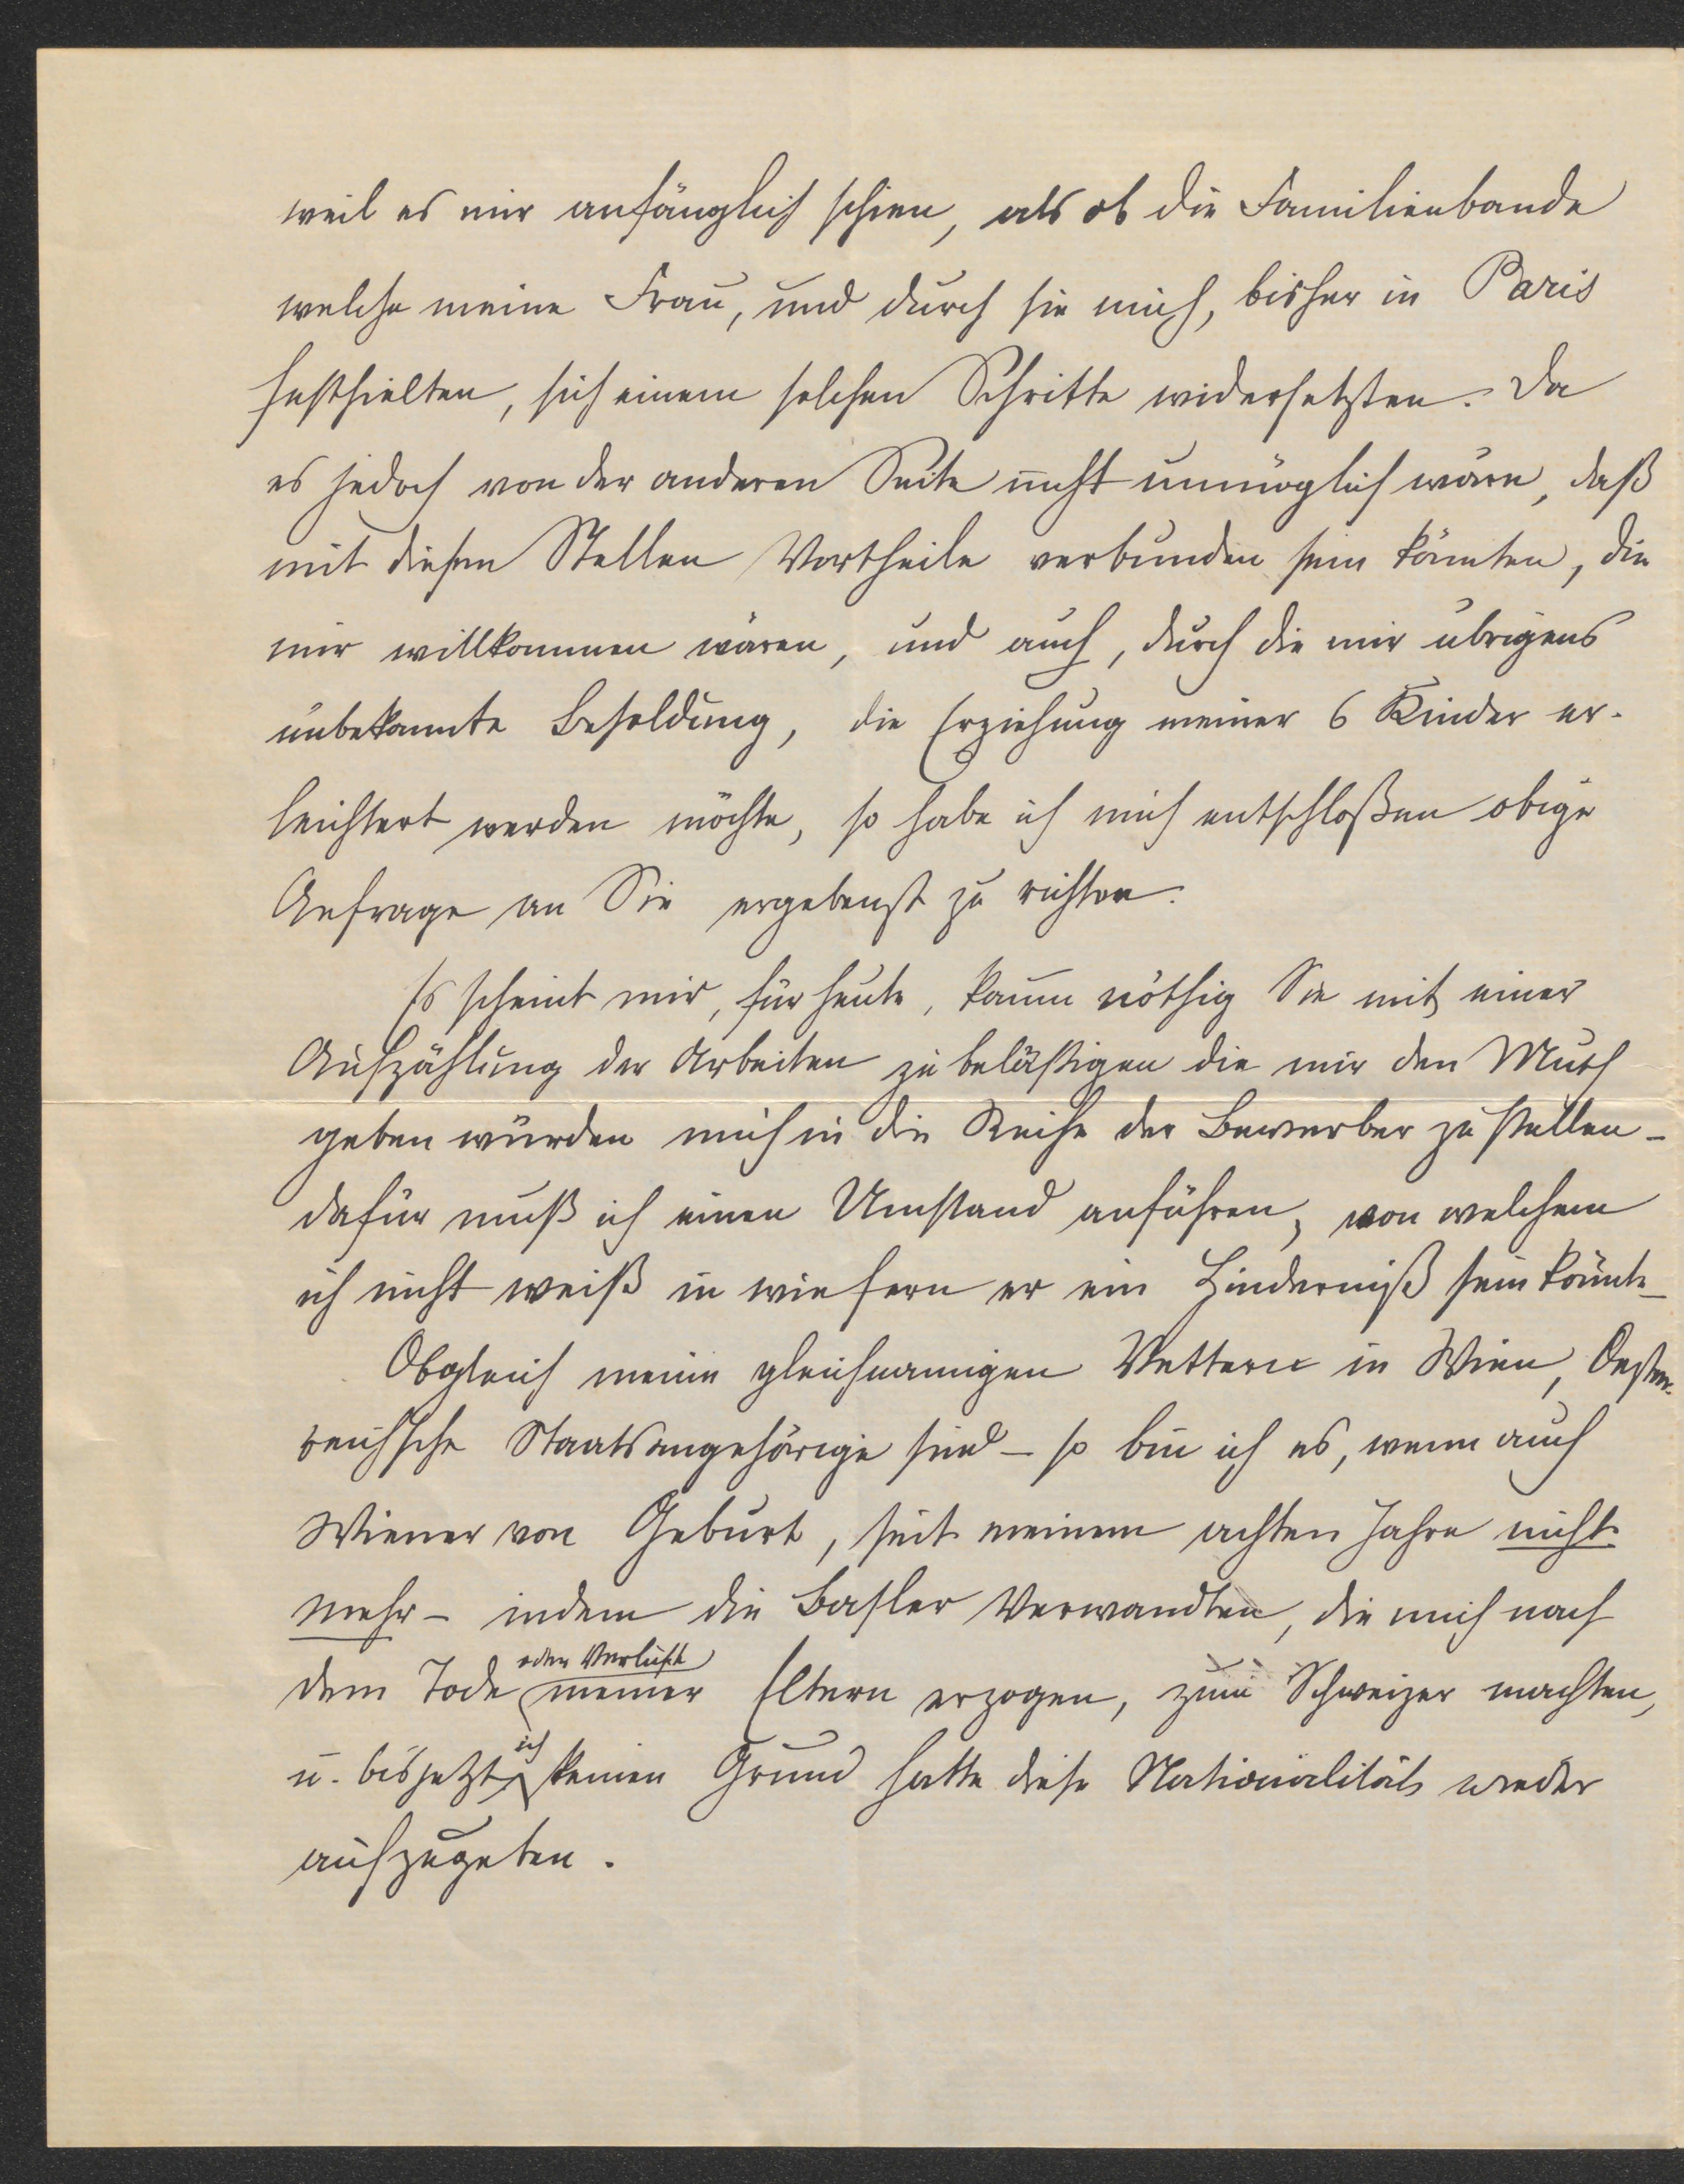 weil es mir anfänglich schien, als ob die Familienbande
welche meine Frau, und durch sie mich, bisher in Paris
festhielten, sich einem solchen Schritte widersetzten. Da
es jedoch von der anderen Seite nicht unmöglich wäre, daß
mit diesen Stellen Vortheile verbunden sein könnten, die
mir willkommen wären, und auch, durch die mir übrigens
unbekannte Besoldung, die Erziehung meiner 6 Kinder er-
leichtert werden möchte, so habe ich mich entschloßen obige
Anfrage an Sie ergebenst zu richten.
Es scheint mir, für heute, kaum nöthig Sie mit einer
Aufzählung der Arbeiten zu beläßtigen die mir den Muth
geben würden mich in die Reihe der Bewerber zu stellen –
dafür muß ich einen Umstand anführen, von welchem
ich nicht weiß in wie fern er ein Hinderniß sein könnte –
Obgleich meine gleichnamigen Vettern in Wien, Oester-
reichsche Staatsangehörige sind – so bin ich es, wenn auch
Wiener von Geburt, seit meinem achten Jahre nicht
mehr – indem die Basler Verwandten, die mich nach
oder Verlust
dem Tode meiner Eltern erzogen, zum Schweizer machten,
ich
u. bis jetzt keinen Grund hatte diese Nationalität wieder
aufzugeben.